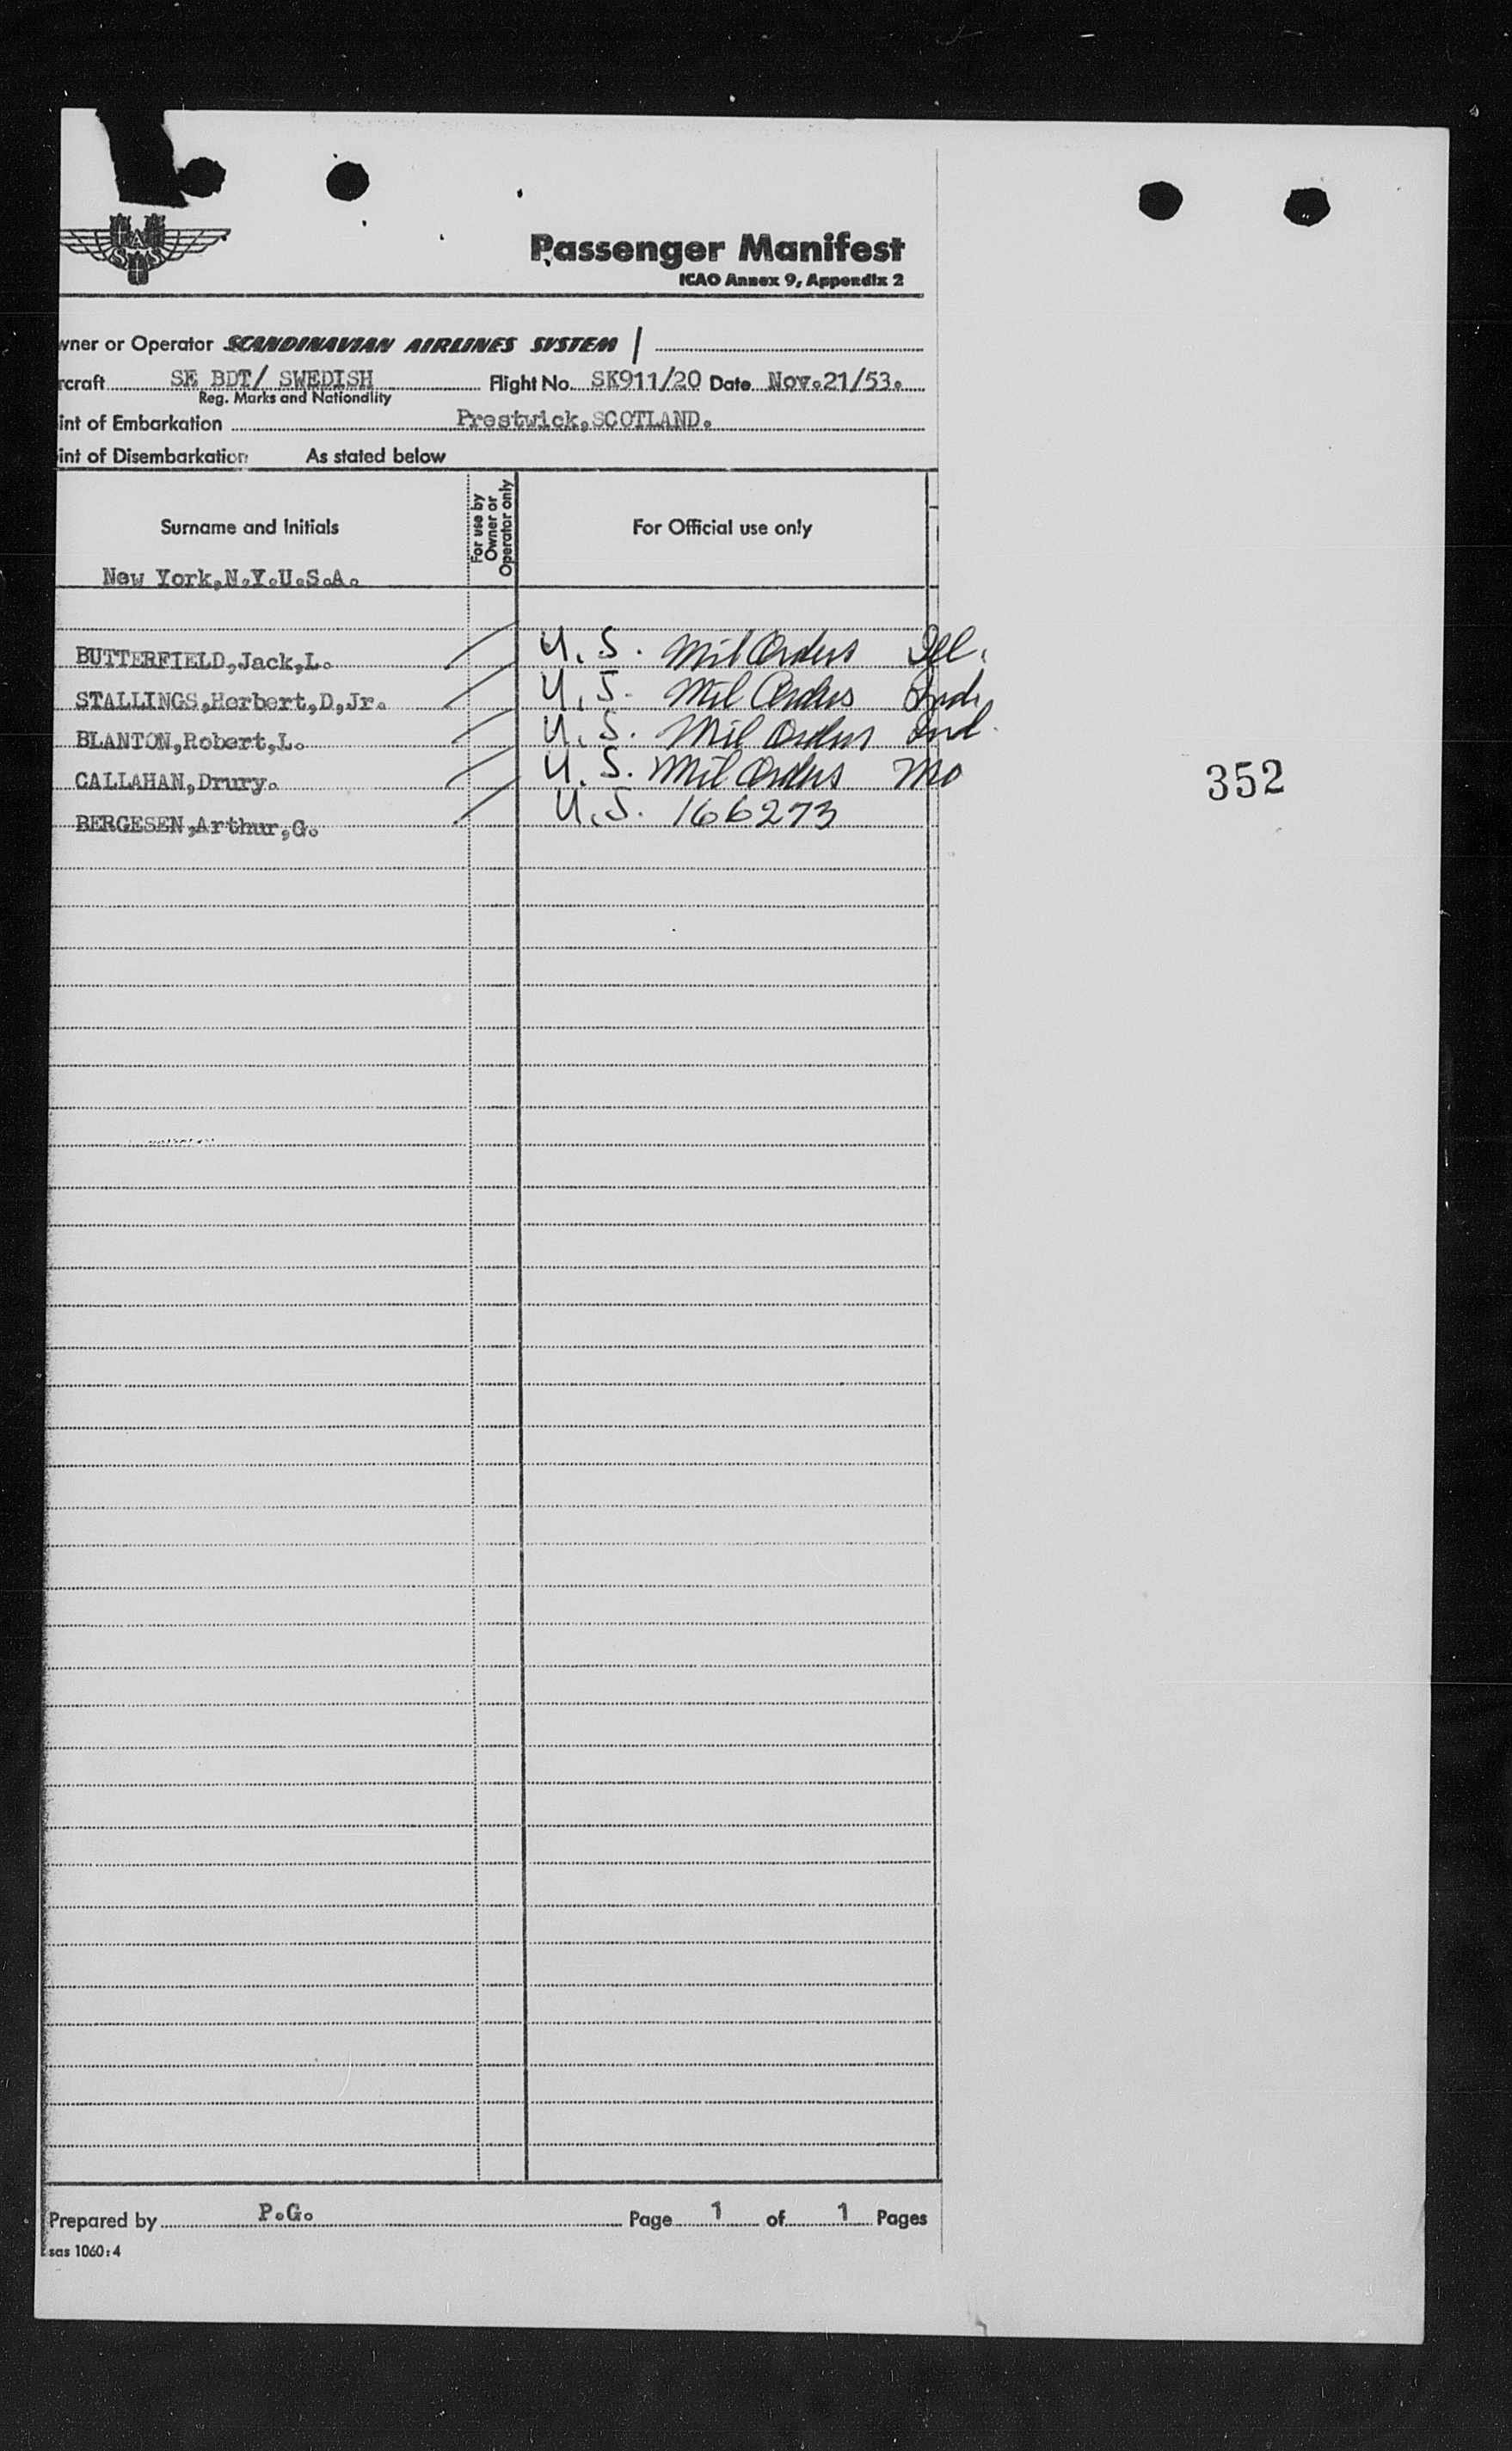 SAS
Passenger Manifest
ICAO Annex 9, Appendix 2
wner or Operator SCANDINAVIAN AIRLINES SYSTEM /
rcraft SE BDT/ SWEDISH Flight No. SK911/20 Date Nov.21/53.
Reg. Marks and Nationality
int of Embarkation Prestwick,SCOTLAND.
int of Disembarkation As stated below
Surname and Initials For use by Owner or Operator only For Official use only
New York,N.Y.U.S.A.
BUTTERFIELD,Jack,L. U.S. Mil Orders Ill.
STALLINGS,Herbert,D,Jr. U.S. Mil Orders Ind.
BLANTON,Robert,L. U.S. Mil Orders Ind.
CALLAHAN,Drury. U.S. Mil Orders Mo
352
BERGESEN,Arthur,G. U.S. 166273
Prepared by P.G. Page 1 of 1 Pages
sas 1060:4